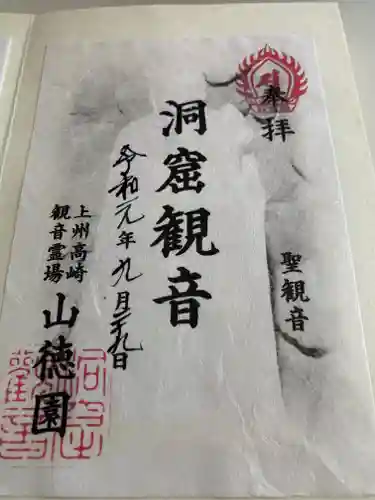 奉拝
聖観音
洞窟観音
令和元年九月二十九日
上州高崎
観音霊場
山徳園